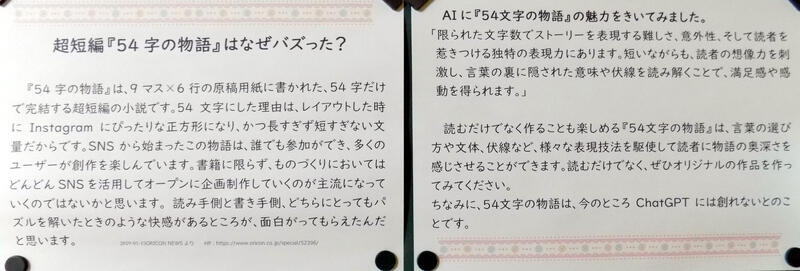 超短編『54字の物語』はなぜバズった？
『54字の物語』は、9マス×6行の原稿用紙に書かれた、54字だけ
で完結する超短編の小説です。54 文字にした理由は、レイアウトした時
に Instagram にぴったりな正方形になり、かつ長すぎず短すぎない文
量だからです。SNS から始まったこの物語は、誰でも参加ができ、多くの
ユーザーが創作を楽しんでいます。書籍に限らず、ものづくりにおいては
どんどん SNS を活用してオープンに企画制作していくのが主流になって
いくのではないかと思います。 読み手側と書き手側、どちらにとってもパ
ズルを解いたときのような快感があるところが、面白がってもらえたんだ
と思います。
ORICON NEWS より HP：https://www.oricon.co.jp/special/52396/
AIに『54文字の物語』の魅力をきいてみました。
「限られた文字数でストーリーを表現する難しさ、意外性、そして読者を
惹きつける独特の表現力にあります。短いながらも、読者の想像力を刺
激し、言葉の裏に隠された意味や伏線を読み解くことで、満足感や感
動を得られます。」
読むだけでなく作ることも楽しめる『54文字の物語』は、言葉の選び
方や文体、伏線など、様々な表現技法を駆使して読者に物語の奥深さを
感じさせることができます。読むだけでなく、ぜひオリジナルの作品を作
ってみてください。
ちなみに、54文字の物語は、今のところ ChatGPT には創れないとのこ
とです。